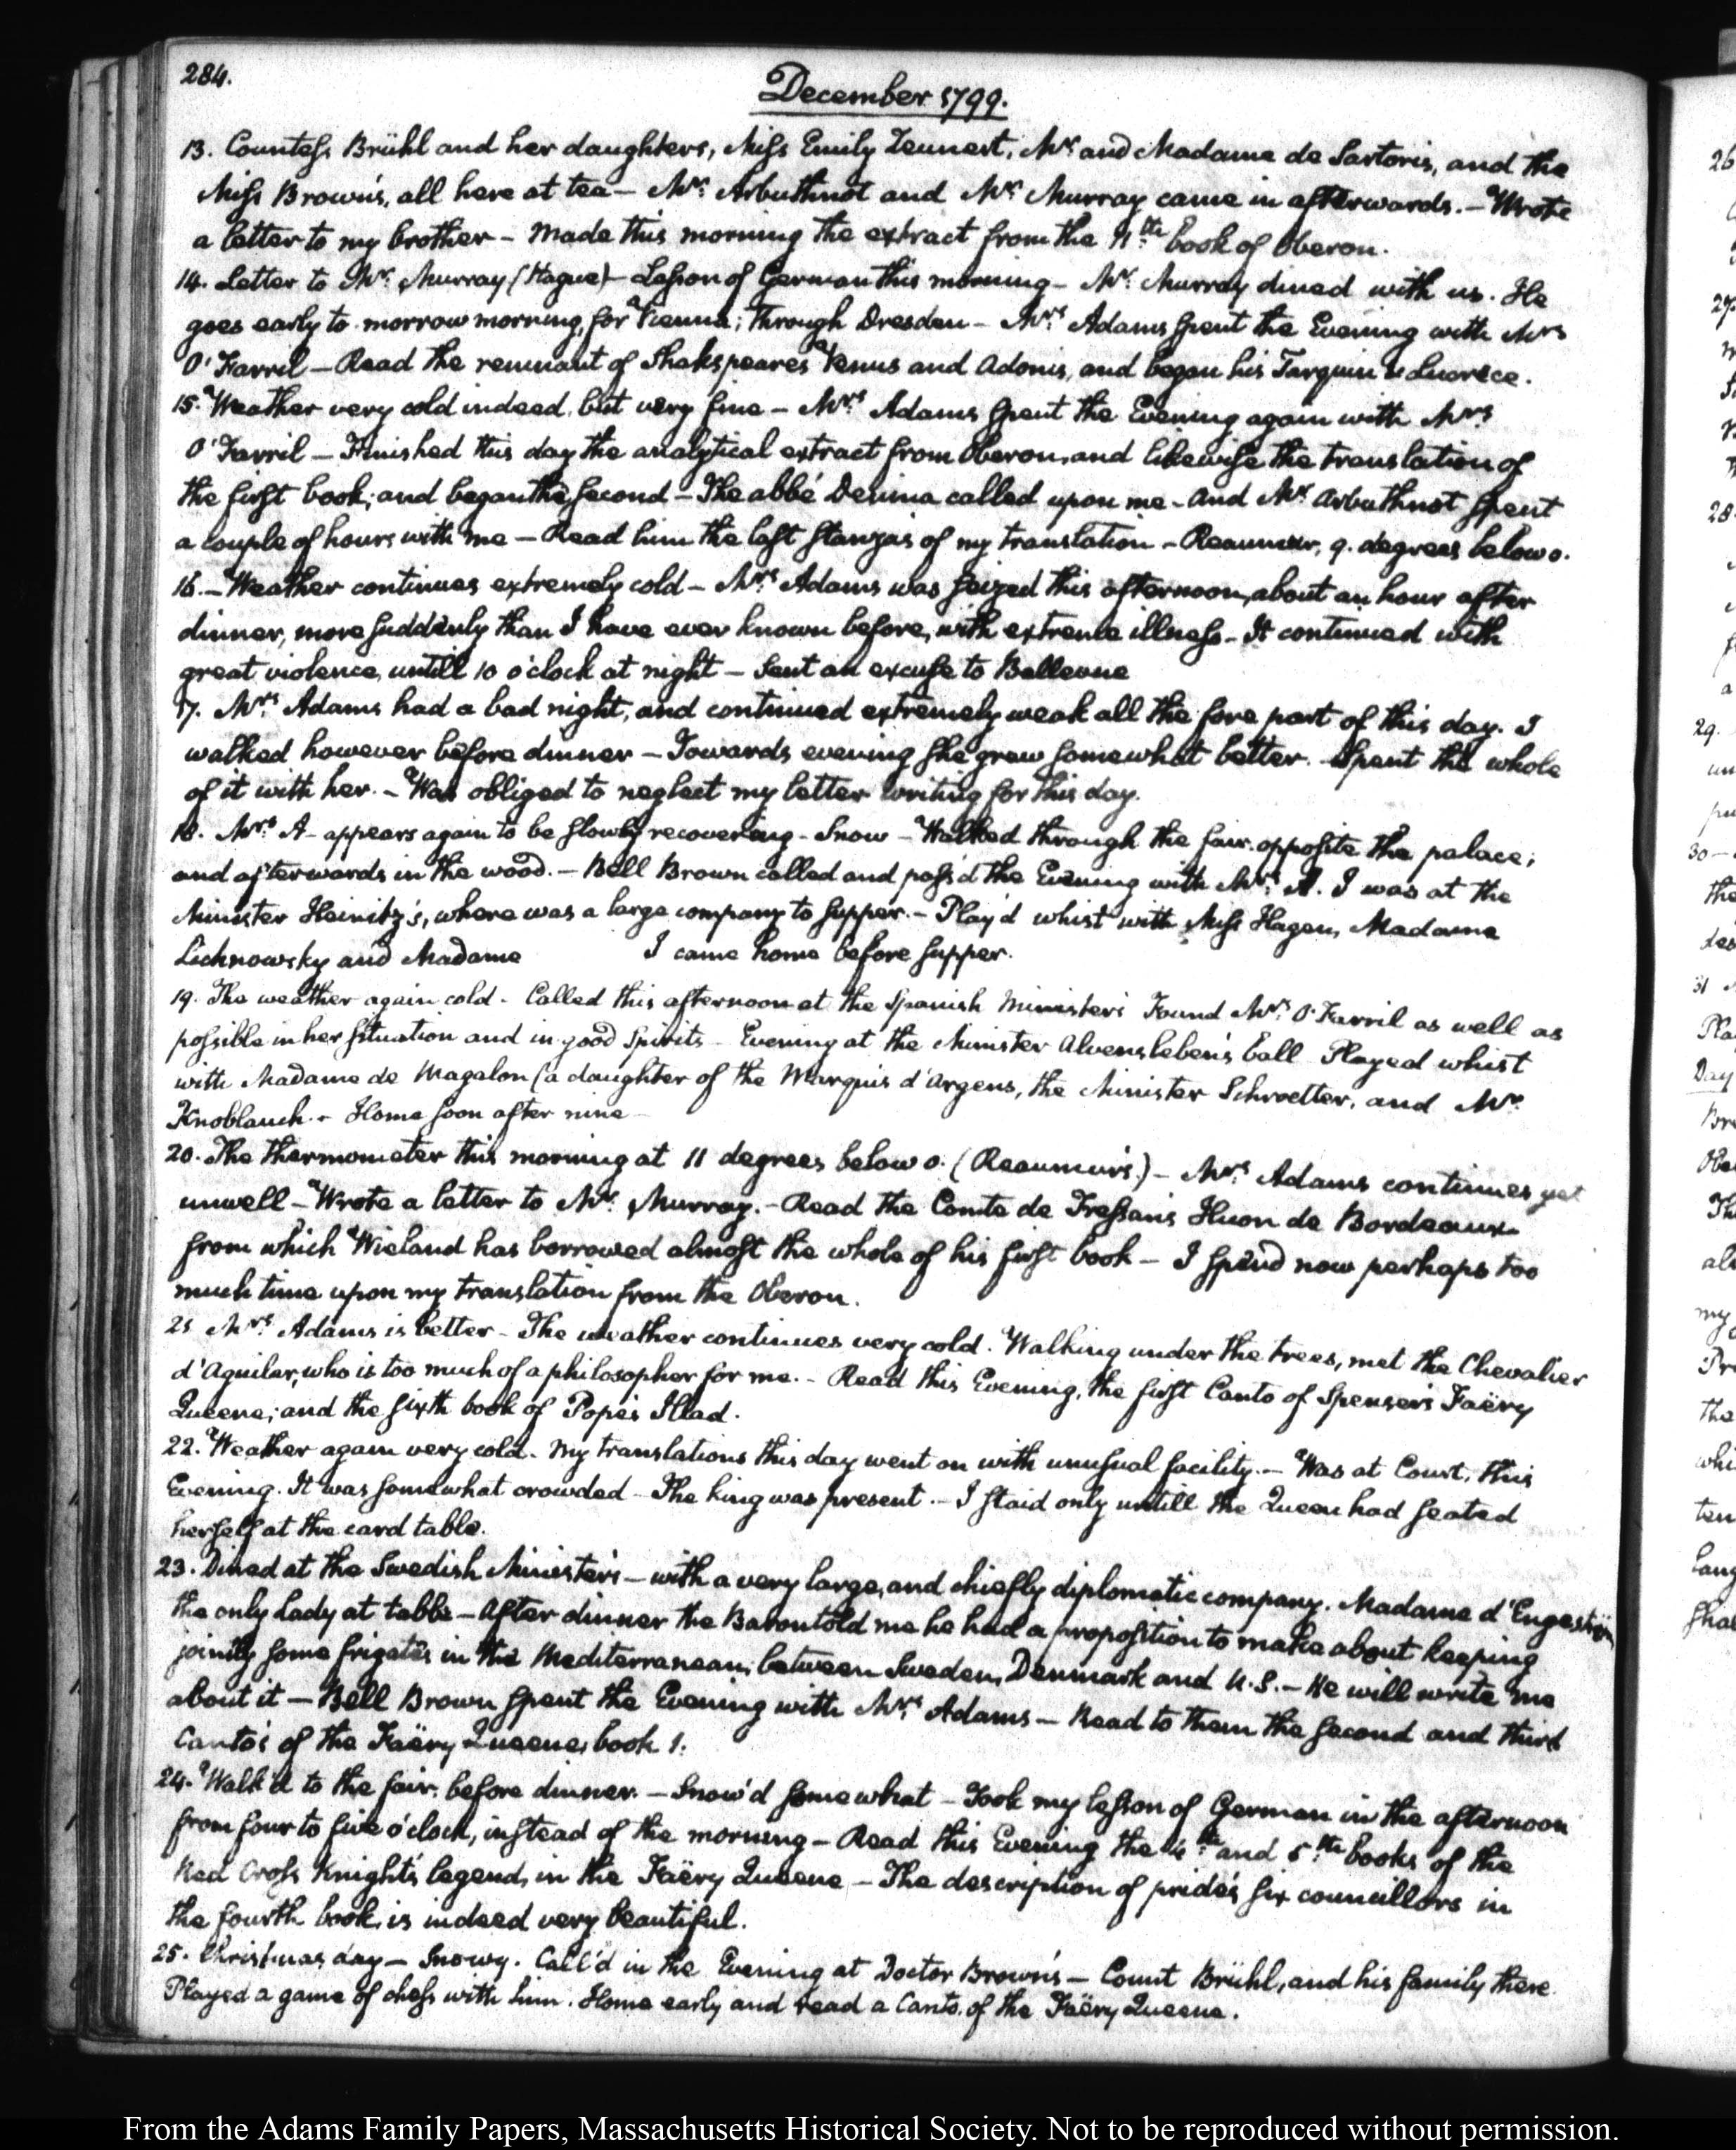 284.
December 1799.
13. Countess Brühl and her daughters, Miss Emily Zeunert, Mr. and Madame de Sartoris, and the
Miss Brown's, all here at tea — Mr. Arbuthnot and Mr. Murray came in afterwards. — Wrote
a letter to my brother — Made this morning the extract from the 11.th book of Oberon.
14. Letter to Mr. Murray (Hague) — Lesson of German this morning — Mr. Murray dined with us. He
goes early to-morrow morning, for Vienna; through Dresden — Mrs. Adams spent the Evening with Mrs
O'Farril — Read the remnant of Shakspeares Venus and Adonis, and began his Tarquin & Lucrece.
15. Weather very cold indeed, but very fine — Mrs. Adams spent the Evening again with Mrs
O'Farril — Finished this day the analytical extract from Oberon, and likewise the translation of
the first book; and began the second — The abbé Denina called upon me — And Mr. Arbuthnot spent
a couple of hours with me — Read him the last stanzas of my translation — Reaumur, 9. degrees below 0.
16. — Weather continues extremely cold — Mrs. Adams was seized this afternoon, about an hour after
dinner, more suddenly than I have ever known before, with extreme illness — It continued with
great violence, untill 10 o'clock at night — Sent an excuse to Bellevue
17. Mrs. Adams had a bad night, and continued extremely weak all the fore part of this day. I
walked however before dinner — Towards evening she grew somewhat better. Spent the whole
of it with her. — Was obliged to neglect my letter writing for this day.
18. Mrs. A — appears again to be slowly recovering — Snow — Walked through the fair opposite the palace;
and afterwards in the wood. — Bell Brown called and pass'd the Evening with Mrs. A. I was at the
Minister Heinitz's, where was a large company to supper. — Play'd whist with Miss Hagen, Madame
Lichnowsky and Madame I came home before supper.
19. The weather again cold. Called this afternoon at the Spanish Minister's Found Mrs. O'Farril as well as
possible in her situation and in good spirits — Evening at the Minister Alvensleben's ball Played whist
with Madame de Magalon (a daughter of the Marquis d'Argens, the Minister Schroetter, and Mr.
Knoblauch. — Home soon after nine —
20. The thermometer this morning at 11 degrees below 0. (Reaumur's.) — Mrs. Adams continues yet
unwell — Wrote a letter to Mr. Murray. — Read the Comte de Tressan's Huon de Bordeaux
from which Wieland has borrowed almost the whole of his first book — I spend now perhaps too
much time upon my translation from the Oberon.
21 Mrs. Adams is better — The weather continues very cold. Walking under the trees, met the Chevalier
d'Aguilar, who is too much of a philosopher for me. — Read this Evening, the first Canto of Spenser's Faëry
Queene; and the sixth book of Pope's Iliad.
22. Weather again very cold. My translations this day went on with unusual facility. — Was at Court, this
Evening. It was somewhat crowded — The king was present. — I staid only untill the Queen had seated
herself at the card table.
23. Dined at the Swedish Minister's — with a very large, and chiefly diplomatic company. Madame d'Engeström
the only lady at table — After dinner the Baron told me he had a proposition to make about keeping
jointly some frigates in the Mediterranean, between Sweden, Denmark and U.S. — He will write me
about it — Bell Brown spent the Evening with Mrs. Adams — Read to them the second and third
Canto's of the Faëry Queene, book 1.
24. Walk'd to the fair before dinner. — Snow'd somewhat — Took my lesson of German in the afternoon
from four to five o'clock, instead of the morning — Read this Evening the 4.th and 5.th books of the
Red Cross Knight's legend, in the Faëry Queene — The description of pride's six councillors in
the fourth book, is indeed very beautiful.
25. Christmas day — Snowy. Call'd in the Evening at Doctor Brown's — Count Brühl, and his family there.
Played a game of chess with him. Home early and read a Canto of the Faëry Queene.
From the Adams Family Papers, Massachusetts Historical Society. Not to be reproduced without permission.